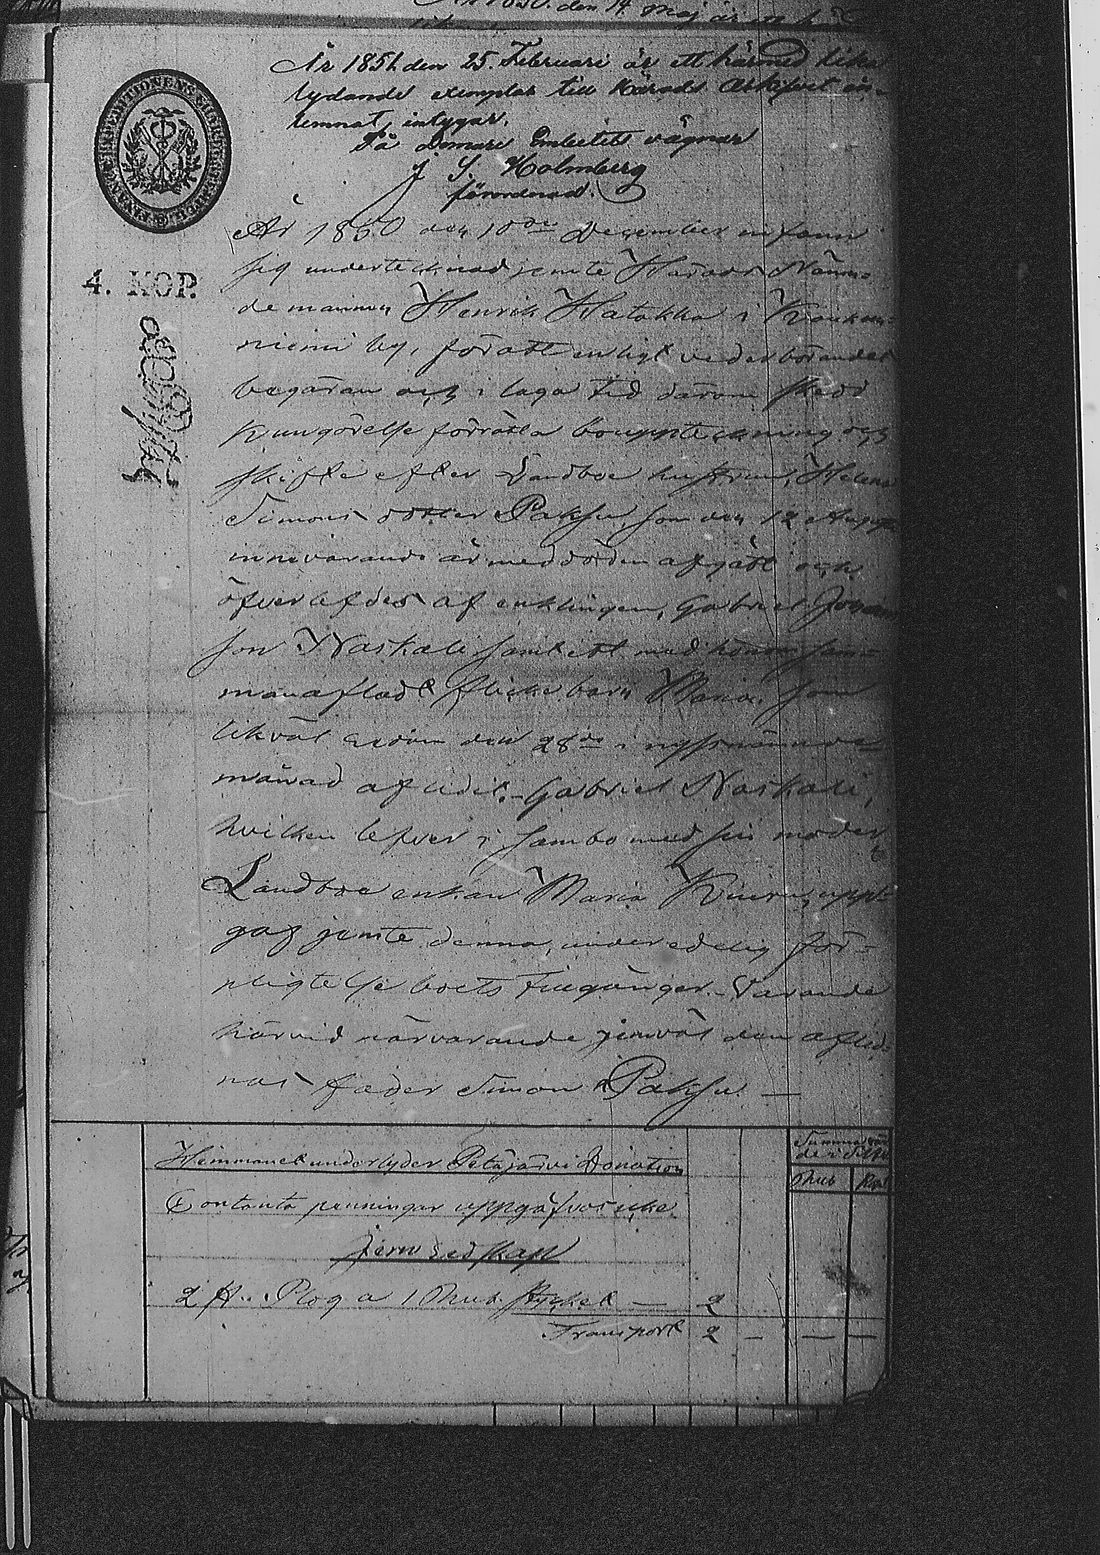 År 1851 den 25. Februari är ett härmed lika
lydande exemplar till Härads Arkifvet in-
lemnat, intygar.
På Domare Embetets vägnar
J S. Holmberg
förordnad.
4. KOP.
År 1850 den 10de December infann
sig undertecknad jemte Härads Näm-
demannen Henrik Hatakka i
niemi by, för att enligt vederbörandes
begäran och i laga tid därom skedd
kungörelse förrätta bouppteckning och
skifte efter Landboe hustrun, Helena
Simons dotter Paksu, som den 12 Augusti
innevarande år med döden afgått och
öfverlefdes af enklingen, Gabriel Johans
son Naskali samt ett med honom sam-
manafladt flicke barn Maria, som
likväl äfven den 28de i nyssnämnde
månad aflidit. Gabriel Naskali,
hvilken lefver i sambo med sin moder
Landboe enkan Maria upp-
gaf jemte denna, under edelig för-
pligtelse boets tillgångar. Varande
härvid närvarande jemväl den aflid-
nas fader Simon Paksu. —
Summa
de i Silfver
Rub Kop
Hemmanet underlyder Petäjärvi Donation
Contanta penningar uppgåfvos icke.
Jernredskap
2 st. Plog a 1 Rub. stycket — 2
Transport 2 — — —